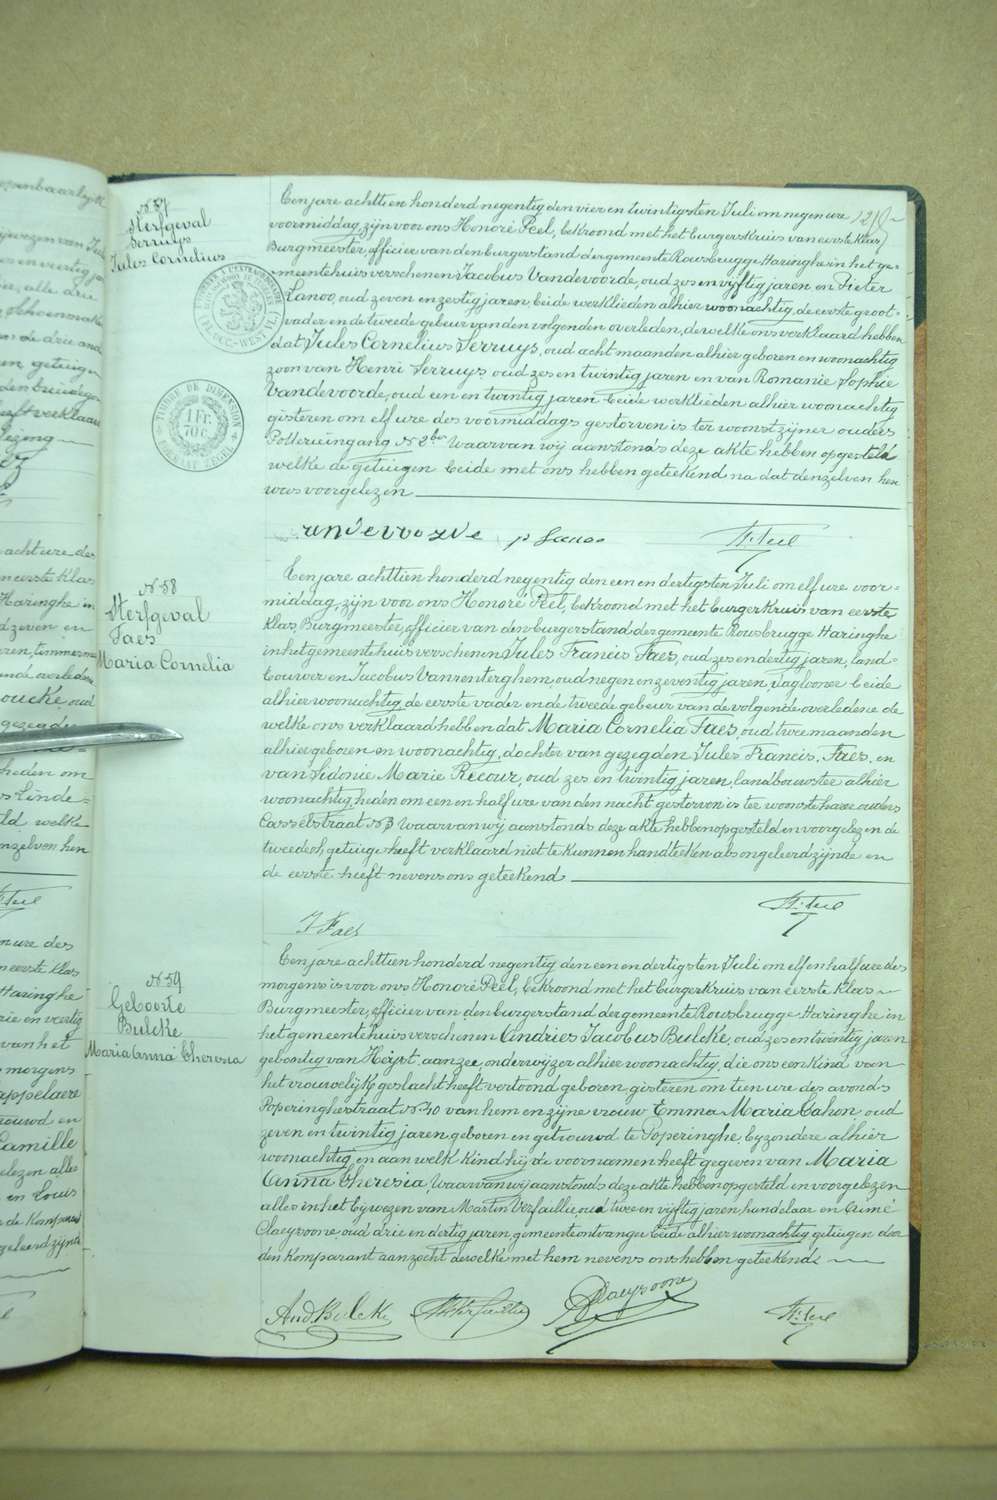 N. 57
Sterfgeval
Serruys
Jules Cornelius
Eenjare achttien honderd negentig den vier en twintigsten Juli om negen ure
voormiddag, zijn voor ons Honoré Peel, bekroond met het burgerskruis van eerste klas,
Burgmeester, officier van den burgerstand der gemeente Rousbrugge Haringhe in het ge=
meentehuis verschenen Jacobus Vandevoorde, oud zes en vijftig jaren en Pieter
Lanoo, oud zeven en zestig jaren, beide werklieden alhier woonachtig, de eerste groot=
vader en de tweede gebeur van den volgenden overleden, dewelke ons verklaard hebben
dat Jules Cornelius Serruys, oud acht maanden alhier geboren en woonachtig
zoon van Henri Serruys oud zes en twintig jaren en van Romanie Sophie
Vandevoorde, oud een en twintig jaren beide werklieden alhier woonachtig
gisteren om elf ure des voormiddags gestorven is ter woonst zijner ouders
Potteriengang N. 2bis Waarvan wij aanstonds deze akte hebben opgesteld
welke de getuigen beide met ons hebben geteekend na dat denzelven hen
was voorgelezen
vandevoorde p Lanoo H. Peel
N. 58
Sterfgeval
Faes
Maria Cornelia
Eenjare achttien honderd negentig den een en dertigsten Juli om elf ure voor=
middag, zijn voor ons Honoré Peel, bekroond met het burgerkruis van eerste
klas, Burgmeester, officier van den burgerstand der gemeente Rousbrugge Haringhe
in het gemeentehuis verschenen Jules Francis Faes, oud zes en dertig jaren, land=
bouwer en Jacobus Vanrenterghem, oud negen en zeventig jaren, daglooner beide
alhier woonachtig, de eerste vader en de tweede gebeur van de volgende overledene de
welke ons verklaard hebben dat Maria Cornelia Faes, oud twee maanden
alhier geboren en woonachtig, dochter van gezegden Jules Francis Faes, en
van Sidonie Marie Recour, oud zes en twintig jaren, landbouwster alhier
woonachtig, heden om een en half ure van den nacht gestorven is ter woonste harer ouders
Casselstraat N. 3 Waarvan wij aanstonds deze akte hebben opgesteld en voorgelezen de
tweeden getuige heeft verklaard niet te kunnen handteeken als ongeleerd zijnde en
de eerste heeft nevens ons geteekend
J Faes H. Peel
N. 59
Geboorte
Bulcke
Maria Anna Theresia
Eenjare achttien honderd negentig den een en dertigsten Juli om elf en half ure des
morgens is voor ons Honoré Peel, bekroond met het burgerkruis van eerste klas
Burgmeester, officier van den burgerstand der gemeente Rousbrugge Haringhe in
het gemeentehuis verschenen Andries Jacobus Bulcke, oud zes en twintig jaren
geboortig van Heyst aan zee, onderwijzer alhier woonachtig, die ons een kind van
het vrouwelijk geslacht heeft vertoond geboren gisteren om tien ure des avonds
Poperinghestraat N. 40 van hem en zijne vrouw Emma Maria Cahon oud
zeven en twintig jaren geboren en getrouwd te Poperinghe, byzondere alhier
woonachtig, en aan welk kind hij de voornamen heeft gegeven van Maria
Anna Theresia, Waarvan wij aanstonds deze akte hebben opgesteld en voorgelezen
alles in het bijwezen van Martin Verfaillie, oud twee en vijftig jaren handelaar en Aimé
Claeysoone oud drie en dertig jaren gemeenteontvanger beide alhier woonachtig getuigen door
den komparant aanzocht dewelke met hem nevens ons hebben geteekend.
And. Bulcke M Verfaillie A Claeysoone H. Peel
TIMBRE DE DIMENSION
1 FR.
70 C.